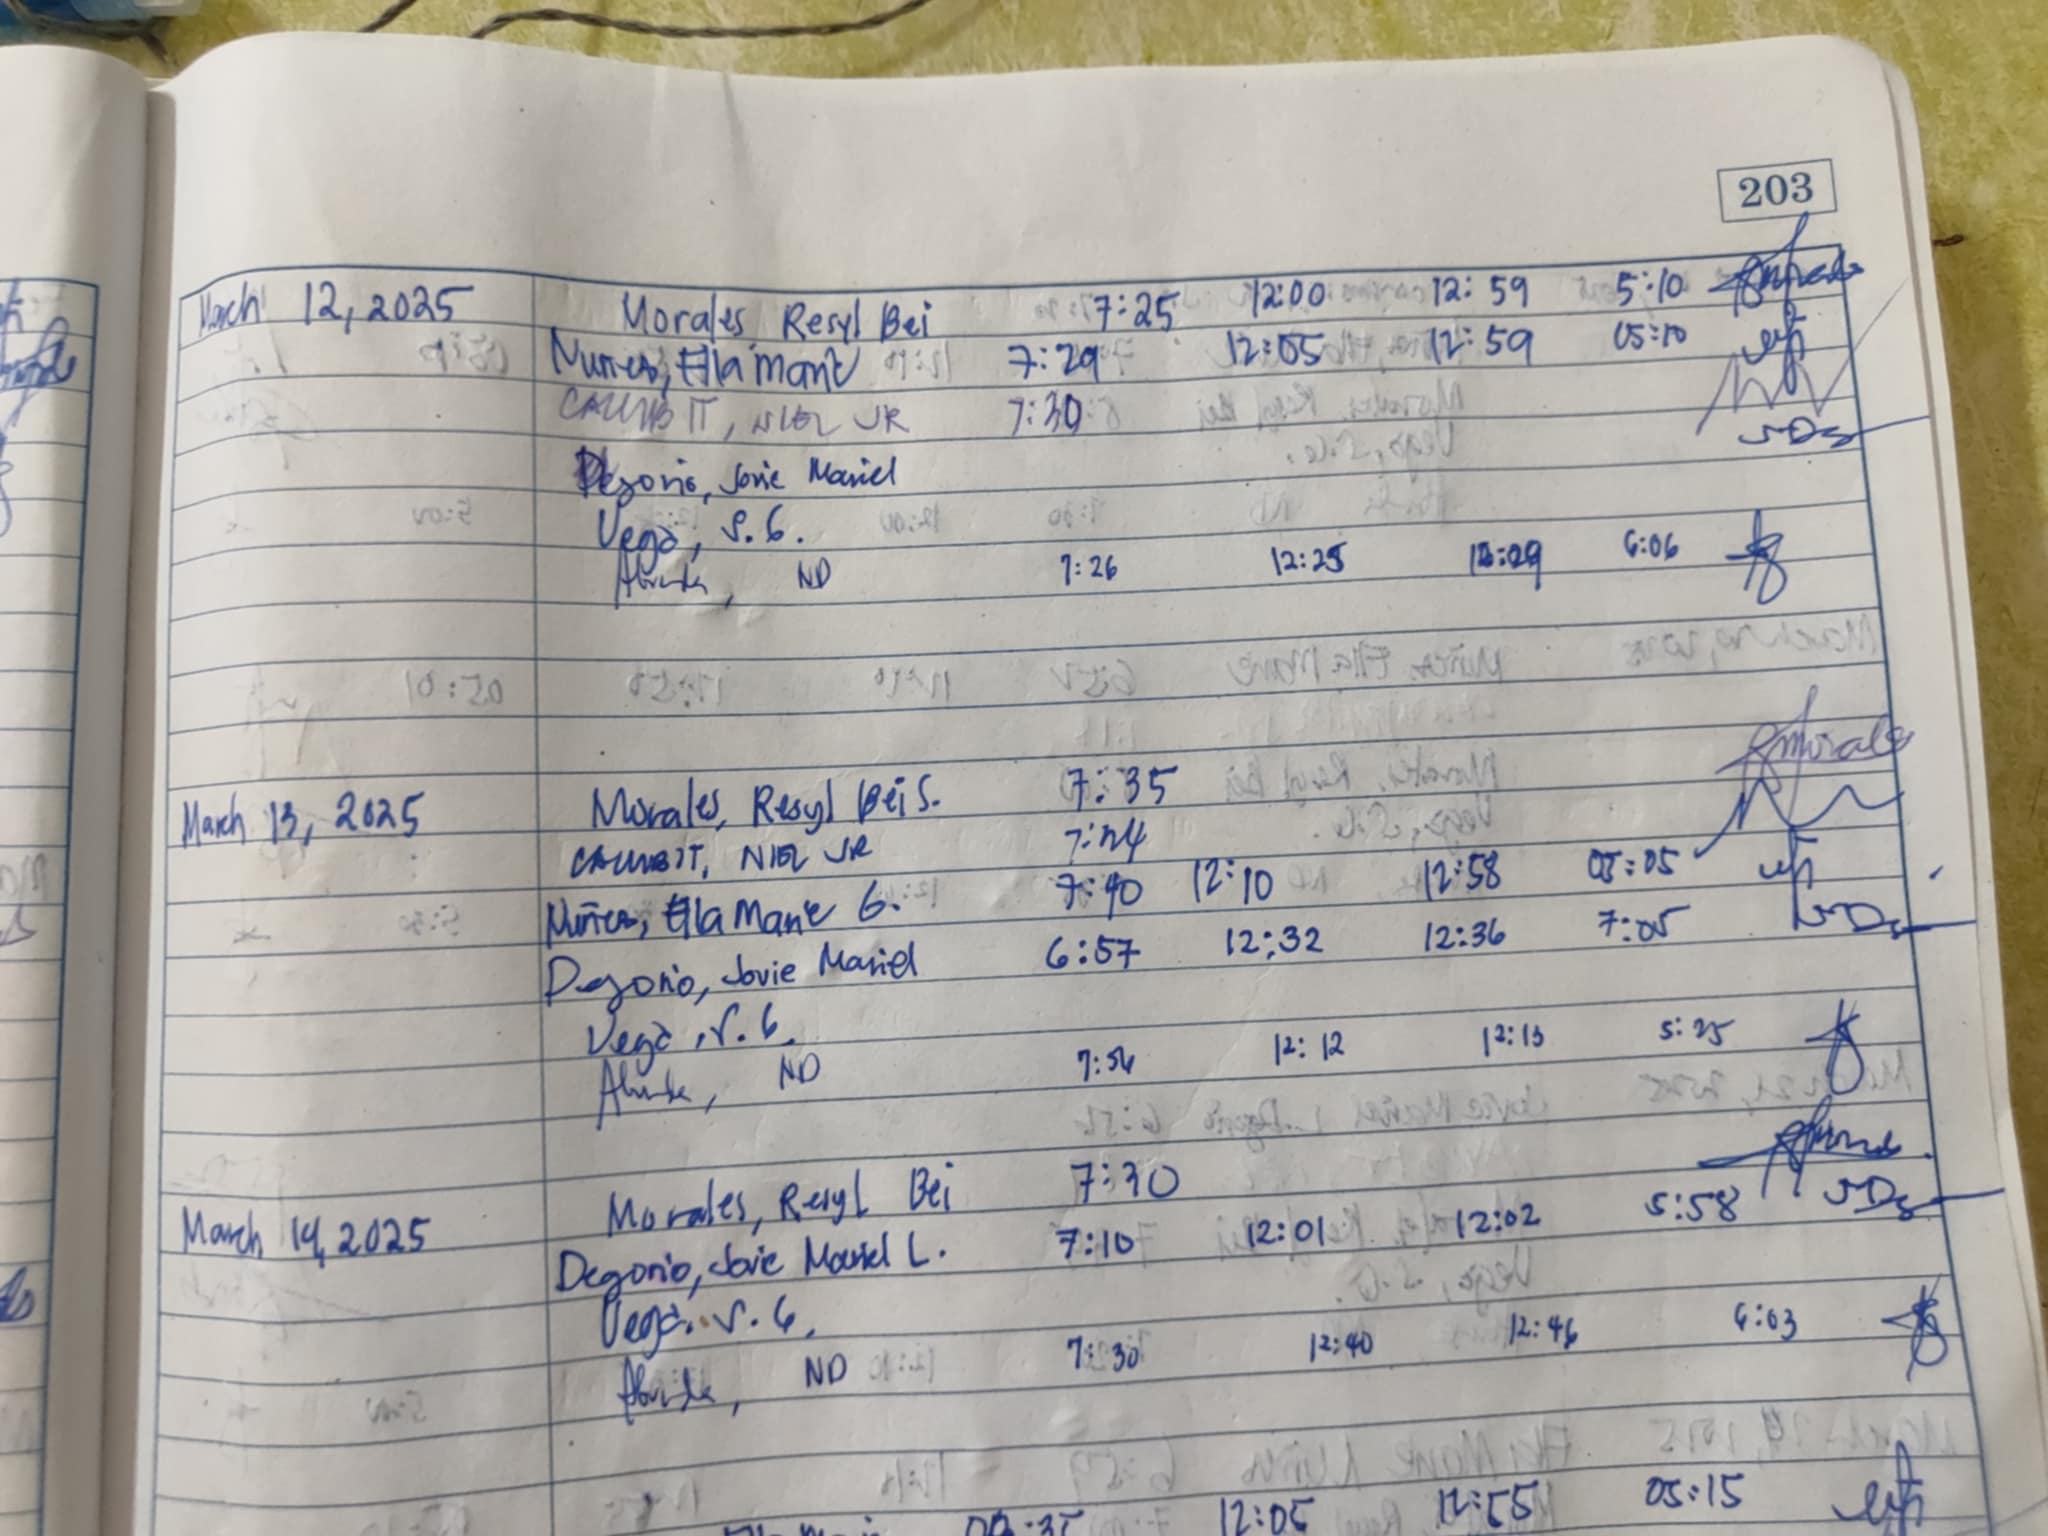 203
March 12, 2025 Morales, Resyl Bei 7:25 12:00 12:59 5:10
Nuñez, Ella Marie 7:29 12:05 12:59 05:10
CALUMBIT, NIEL JR 7:30
Degorio, Jovie Mariel
Vega, S. G.
ND 7:26 12:25 6:06
March 13, 2025 Morales, Resyl Bei S. 7:35
CALUMBIT, NIEL JR 7:24
Nuñez, Ella Marie G. 7:40 12:10 12:58 05:05
Degorio, Jovie Mariel 6:57 12:32 12:36 7:05
Vega, S. G.
ND 7:56 12:12 12:13 5:25
March 14, 2025 Morales, Resyl Bei 7:30
Degorio, Jovie Mariel L. 7:10 12:01 12:02 5:58
Vega, S. G.
ND 7:30 12:40 12:46 6:03
12:05 12:55 05:15